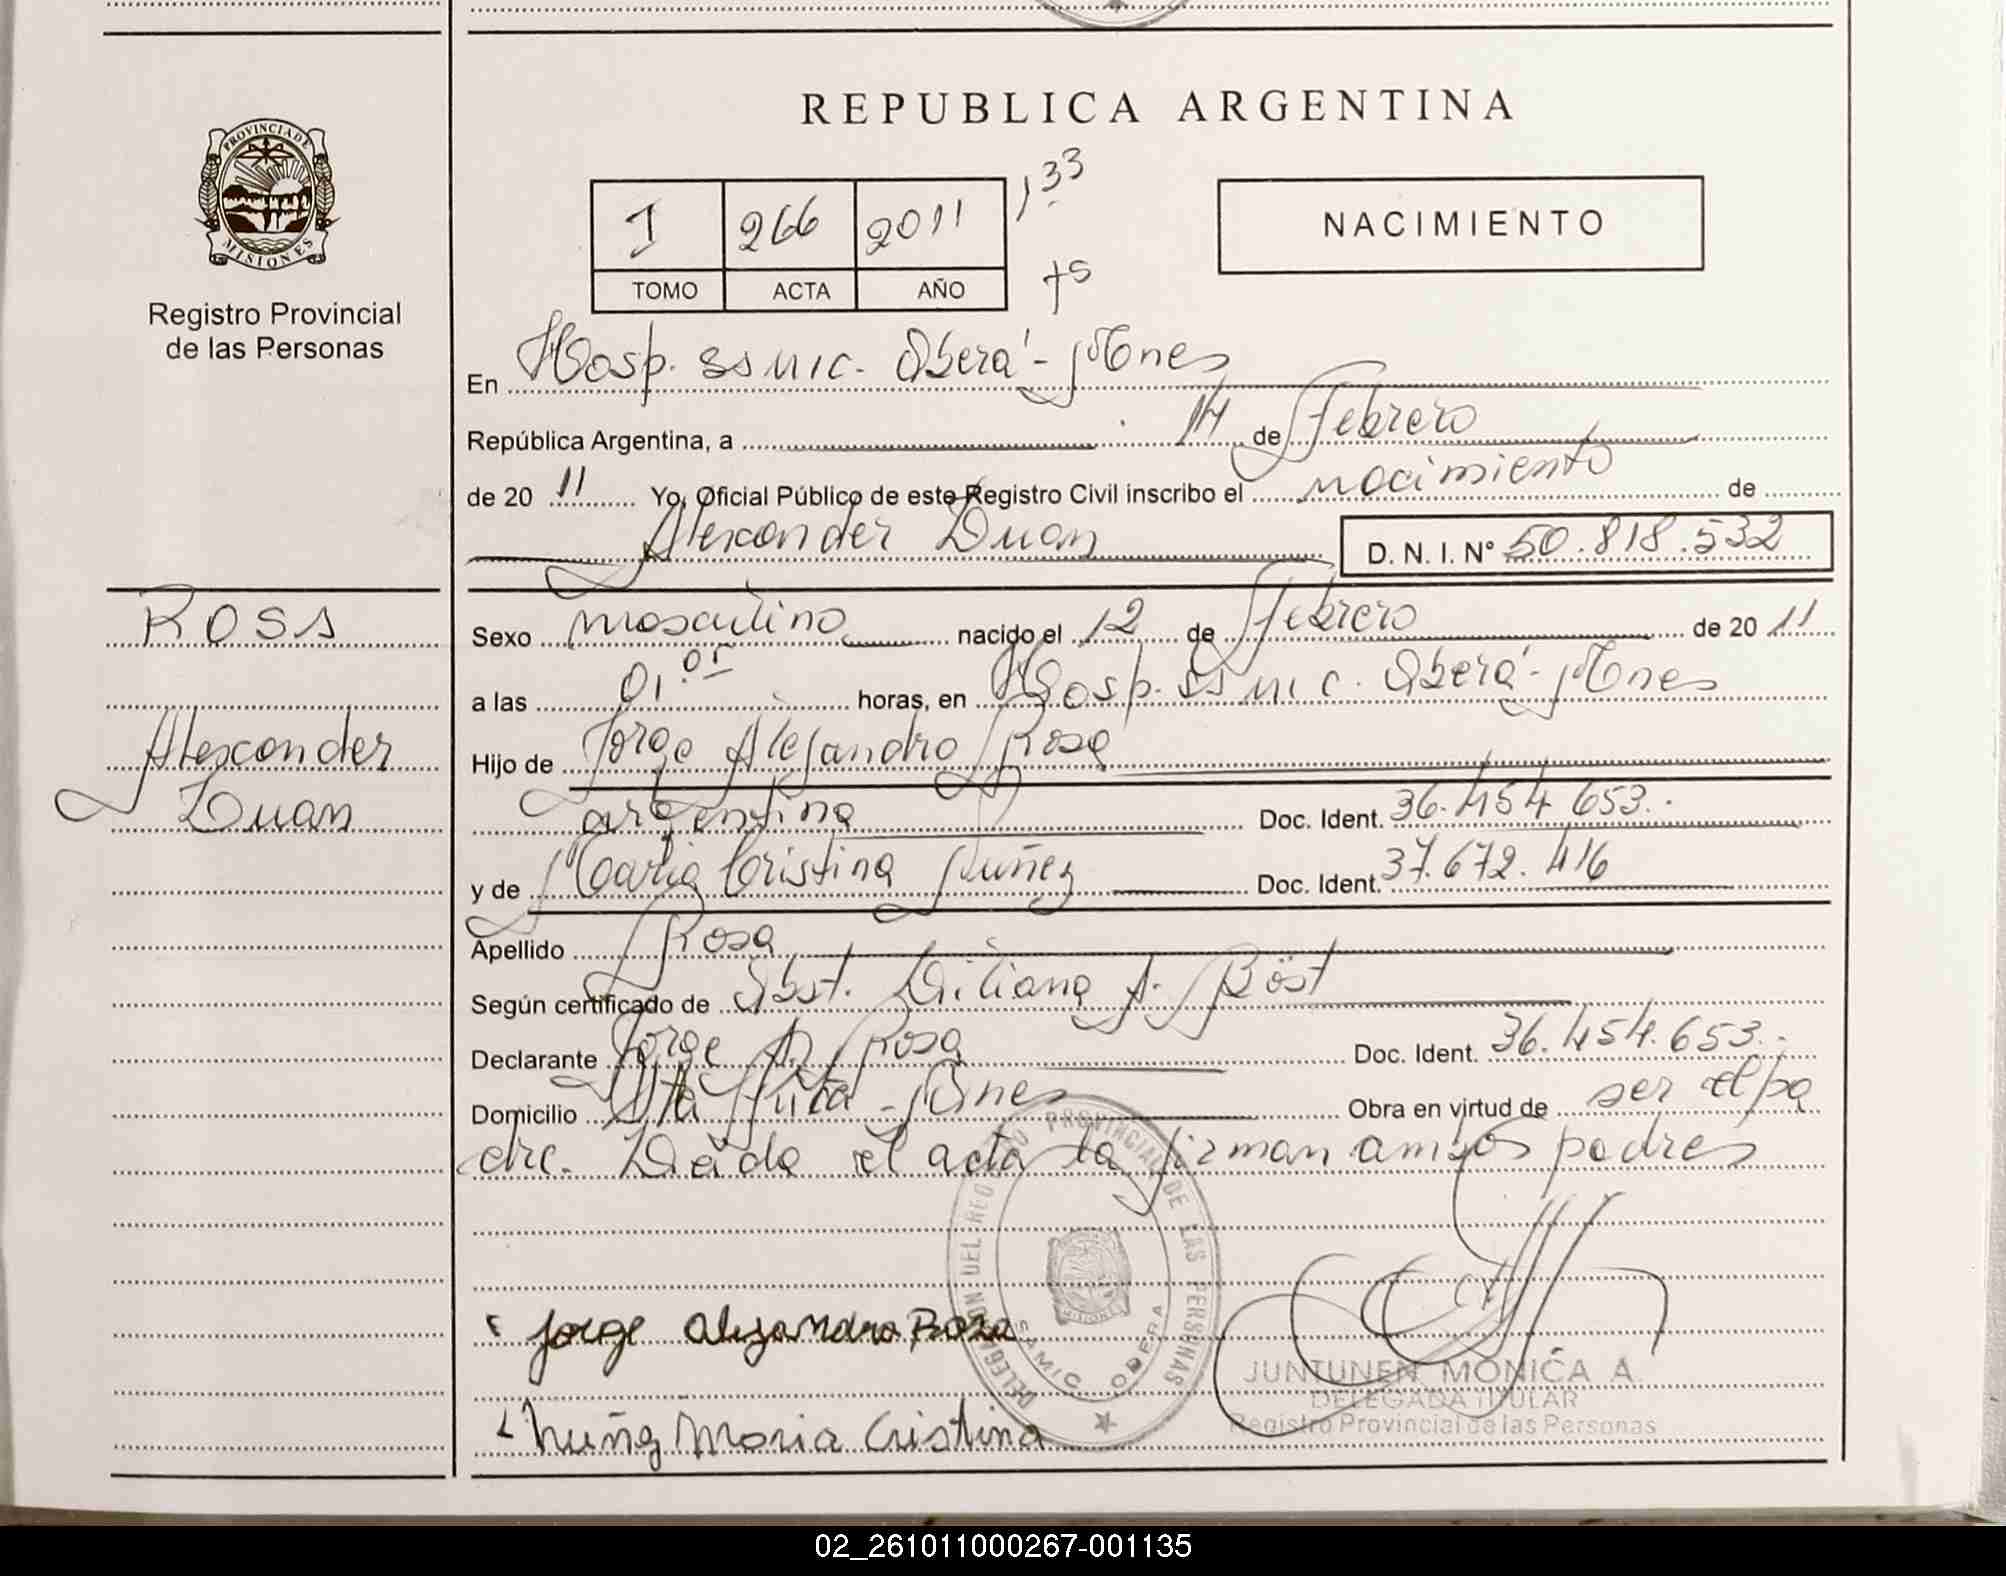 REPUBLICA ARGENTINA
PROVINCIA DE
MISIONES
Registro Provincial
de las Personas
I 266 2011 133
TOMO ACTA AÑO
NACIMIENTO
En Hosp. SSMIC. Oberá - Mnes
República Argentina, a 14 de Febrero
de 20 11 Yo, Oficial Público de este Registro Civil inscribo el nacimiento de
Alexander Luan D. N. I. N° 50.818.532
ROSA
Alexander
Luan
Sexo masculino nacido el 12 de Febrero de 20 11
a las 01.01 horas, en Hosp. SSMIC. Oberá - Mnes
Hijo de Jorge Alejandro Rosa
argentina Doc. Ident. 36.454.653.
y de María Cristina Nuñez Doc. Ident. 37.672.416
Apellido Rosa
Según certificado de Obst. Liliana A. Böst
Declarante Jorge A. Rosa Doc. Ident. 36.454.653.
Domicilio Sta Rita - Mnes Obra en virtud de ser el pa
dre. Leída el acta la firman ambos padres
DELEGACIÓN DEL REGISTRO PROVINCIAL DE LAS PERSONAS
MISIONES
SAMIC OBERA
Jorge Alejandro Roza
Nuñez Maria Cristina
JUNTUNEN MONICA A.
DELEGADA TITULAR
Registro Provincial de las Personas
02_261011000267-001135